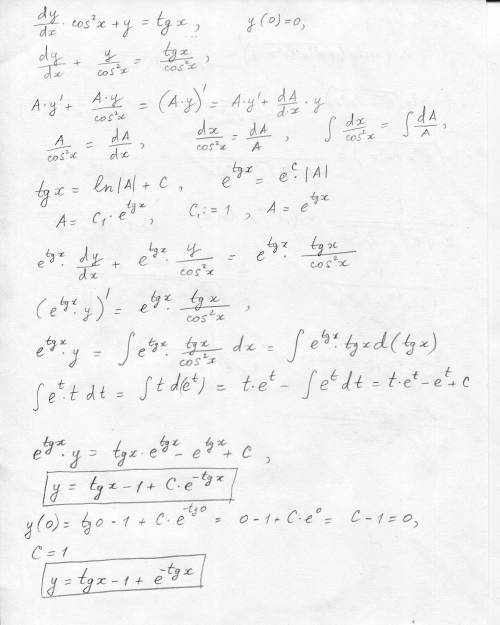 dy/dx · cos²x + y = tgx, y(0)=0,
dy/dx + y/cos²x = tgx/cos²x,
A·y' + A·y/cos²x = (A·y)' = A·y' + dA/dx · y
A/cos²x = dA/dx, dx/cos²x = dA/A, ∫ dx/cos²x = ∫ dA/A,
tgx = ln|A| + C, e^tgx = e^C · |A|
A = C₁·e^tgx, C₁:=1, A = e^tgx
e^tgx · dy/dx + e^tgx · y/cos²x = e^tgx · tgx/cos²x
(e^tgx · y)' = e^tgx · tgx/cos²x,
e^tgx · y = ∫ e^tgx · tgx/cos²x dx = ∫ e^tgx · tgx d(tgx)
∫ e^t · t dt = ∫ t d(e^t) = t·e^t − ∫ e^t dt = t·e^t − e^t + C
e^tgx · y = tgx·e^tgx − e^tgx + C,
y = tgx − 1 + C·e^−tgx
y(0) = tg0 − 1 + C·e^−tg0 = 0 − 1 + C·e⁰ = C − 1 = 0,
C = 1
y = tgx − 1 + e^−tgx